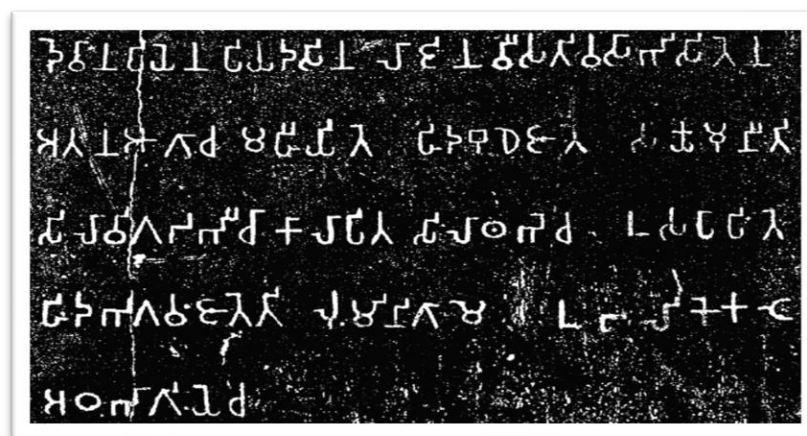 𑀤𑁂𑀯𑀸𑀦𑀧𑀺𑀬𑁂𑀦 𑀧𑀺𑀬𑀤𑀲𑀺𑀦 𑀮𑀸𑀚𑀺𑀦 𑀯𑀻𑀲𑀢𑀺𑀯𑀲𑀸𑀪𑀺𑀲𑀺𑀢𑁂𑀦
𑀅𑀢𑀦 𑀆𑀕𑀸𑀘 𑀫𑀳𑀻𑀬𑀺𑀢𑁂 𑀳𑀺𑀤 𑀩𑀼𑀥𑁂 𑀚𑀸𑀢𑁂 𑀲𑀓𑁆𑀬𑀫𑀼𑀦𑀺 𑀢𑀺
𑀲𑀺𑀮𑀸 𑀯𑀺𑀕𑀥𑀪𑀺 𑀘𑀸 𑀓𑀸𑀮𑀸𑀧𑀺𑀢 𑀲𑀺𑀮𑀸𑀣𑀪𑁂 𑀘 𑀉𑀲𑀧𑀸𑀧𑀺𑀢𑁂
𑀳𑀺𑀤 𑀪𑀕𑀯𑀁 𑀚𑀸𑀢𑁂 𑀢𑀺 𑀮𑀼𑀁𑀫𑀺𑀦𑀺 𑀕𑀸𑀫𑁂 𑀉𑀩𑀮𑀺𑀓𑁂 𑀓𑀝𑁂
𑀅𑀞𑀪𑀸𑀕𑀺𑀬𑁂 𑀘